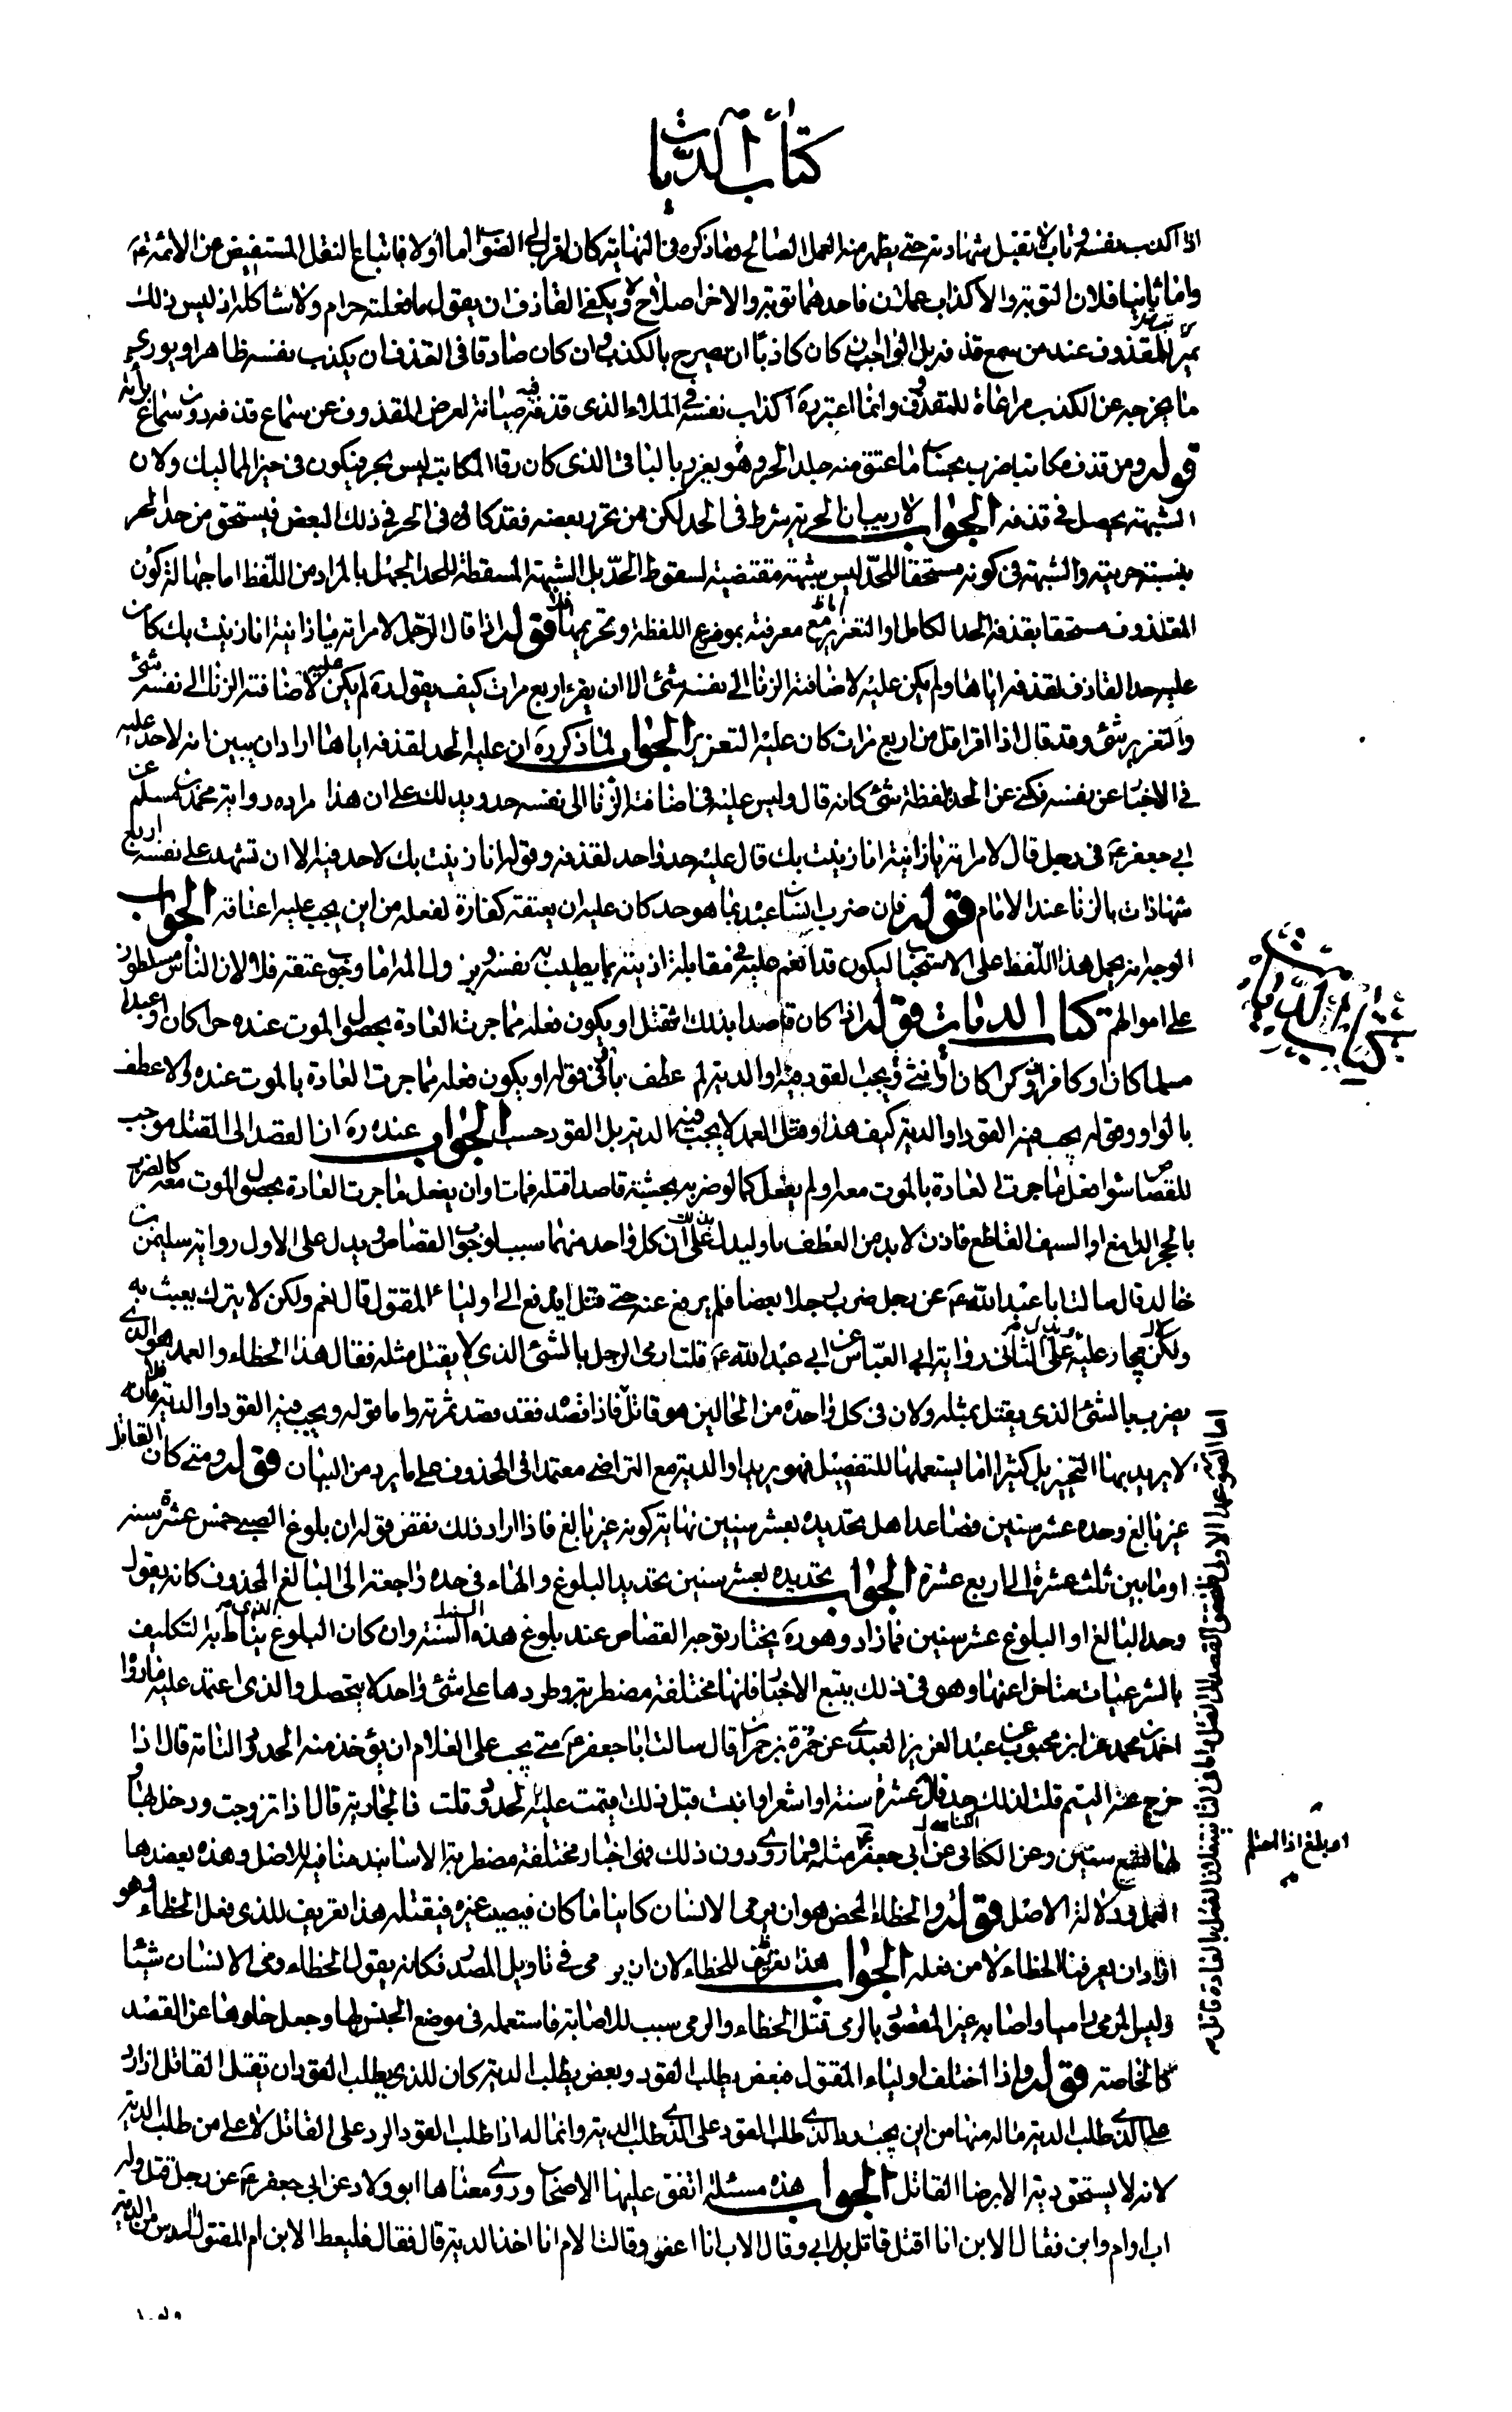 كتاب الديات
اذا اكذب نفسه وتاب لا تقبل شهادته حتى يظهر منه العمل الصالح وما ذكره في النهاية كان اقرب الى الصواب اما اولا فاتباع النقل المستفيض عن الائمة ع
واما ثانيا فلان التوبة والاكذاب عملان فاحدهما توبة والاخر اصلاح ولا يكفي القاذف ان يقول ما فعلته حرام ولا ما شاكله اذ ليس ذلك
للمقذوف عند من سمع قذفه بل الواجب ان كان كاذبا ان يصرح بالكذب وان كان صادقا في القذف ان يكذب نفسه ظاهرا ويوري
ما يخرجه عن الكذب مراعاة للمقذوف وانما اعتبر ره اكذاب نفسه في الملاء الذي قذفه فيه صيانة لعرض المقذوف عن سماع قذفه دون سماع
قوله ومن قذف مكاتبا ضرب بحساب ما عتق منه جلد الحر وهو يعزر بالباقي الذي كان رقا المكاتب ليس بحر فيكون في حيز المماليك ولان
الشبهة يحصل في قذفه الجواب لا ريب ان الحرية شرط في الحد لكن من تحرر بعضه فقد كافى الحر في ذلك البعض فيستحق من حد الحر
بنسبة حريته والشبهة في كونه مستحقا للحد ليس بشبهة مقتضية لسقوط الحد بل الشبهة المسقطة للحد الجهل بالمراد من اللفظ اما جهالة كون
المقذوف مستحقا بقذفه الحد الكامل او التعزير مع معرفته بموضع اللفظة وتحريمها فلا قوله اذا قال الرجل لامراته يا زانية انا زنيت بك كان
عليه حد القاذف لقذفه اياها ولم يكن عليه لاضافته الزنا الى نفسه شئ الا ان يقر اربع مرات كيف يقول ره لم يكن عليه لاضافته الزنا الى نفسه شئ
والتعزير شئ وقد قال اذا اقر اقل من اربع مرات كان عليه التعزير الجواب لما ذكر ره ان عليه الحد لقذفه اياها اراد ان يبين انه لا حد عليه
في الاخبار عن نفسه فكنى عن الحد بلفظة شئ كانه قال وليس عليه في اضافة الزنا الى نفسه حد ويدلك على ان هذا مراده رواية محمد بن مسلم عن
ابي جعفر ع في رجل قال لامراته يا زانية انا زنيت بك قال عليه حد واحد لقذفه وقوله انا زنيت بك لا حد فيه الا ان تشهد على نفسه اربع
شهادات بالزنا عند الامام قوله فان ضرب انسان عبده بما هو حد كان عليه ان يعتقه كفارة لفعله من اين يجب عليه اعتاقه الجواب
الوجه انه يحمل هذا اللفظ على الاستحباب ليكون قد انعم عليه في مقابلة اذيته بما يطيب به نفسه ويزول المه اما وجوب عتقه فلا لان الناس مسلطون
على اموالهم كتاب الديات قوله اذا كان قاصدا بذلك القتل او يكون فعله مما جرت العادة بحصول الموت عنده حرا كان او عبدا
مسلما كان او كافرا ذكرا كان او انثى ويجب القود فيه او الدية لم عطف باو في قوله او يكون فعله مما جرت العادة بالموت عنده ولا عطف
بالواو وقوله يجب فيه القود او الدية كيف هذا وقتل العمد لا يجب فيه الدية بل القود حسب الجواب عنده ره ان القصد الى القتل موجب
للقصاص سواء فعل ما جرت العادة بالموت معه او لم يفعل كما لو ضربه بخشبة قاصدا قتله فمات وان يفعل ما جرت العادة بحصول الموت معه كالضرب
بالحجر الدامغ او السيف القاطع فاذن لا بد من العطف باو ليدل على ان كل واحد منهما سبب لوجوب القصاص ويدل على الاول رواية سليمن بن
خالد قال سالت ابا عبد الله ع عن رجل ضرب رجلا بعصا فلم يرفع عنه حتى قتل ايدفع الى اولياء المقتول قال نعم ولكن لا يترك يعبث به
ولكن يجاز عليه ويدل على الثاني رواية ابي العباس عن ابي عبد الله ع قلت ارمي الرجل بالشئ الذي لا يقتل مثله فقال هذا الخطاء والعمد هو الذي
يضرب بالشئ الذي يقتل بمثله ولان في كل واحدة من الحالين هو قاتل فاذا قصد فقد قصد ثمرته واما قوله ويجب فيه القود او الدية فانه
لا يريد بهنا التخيير بل كثيرا ما يستعملها للتفصيل فهو يريد او الدية مع التراضي معتمدا في المحذوف على ما يرد من البيان قوله ومتى كان القاتل
غير بالغ وحده عشر سنين فصاعدا هل تحديده بعشر سنين نهاية كونه غير بالغ فاذا اراد ذلك نقض قوله ان بلوغ الصبي خمس عشرة سنة
او ما بين ثلث عشرة الى اربع عشرة الجواب تحديده بعشر سنين تحديد البلوغ والهاء في حده راجعة الى البالغ المحذوف كانه يقول
وحد البالغ او البلوغ عشر سنين فما زاد وهو ره يختار توجه القصاص عند بلوغ هذه السنة وان كان البلوغ الذي يناط به التكليف
بالشرعيات متاخرا عنها وهو في ذلك يتبع الاخبار فانها مختلفة مضطربة وطردها على شئ واحد لا يتحصل والذي اعتمد عليه ما رواه
احمد بن محمد عن ابن محبوب عن عبد العزيز العبدي عن حمزة بن حمران قال سالت ابا جعفر ع متى يجب على الغلام ان يؤخذ منه الحدود التامة قال اذا
خرج عنه اليتم قلت لذلك حد قال خمس عشرة سنة او اشعر او انبت قبل ذلك اقيمت عليه الحدود قلت فالجارية قال اذا تزوجت ودخل بها و
لها تسع سنين وعن الكناسي عن ابي جعفر ع مثله وما روي دون ذلك فهي اخبار مختلفة مضطربة الاسانيد منافية للاصل وهذه يعضدها
العمل ودلالة الاصل قوله والخطاء المحض هو ان يرمي الانسان كاينا ما كان فيصيب غيره فيقتله هذا تعريف للذي فعل الخطاء وهو
اراد ان يعرفنا الخطاء لا من فعله الجواب هذا تعريف للخطاء لان ان يرمي في تاويل المصدر فكانه يقول الخطاء رمي الانسان شيئا
وليس الرمي راميا واصابه غير المقصود بالرمي قتل الخطاء والرمي سبب للاصابة فاستعمله في موضع الجنس لها وجعل خلوها عن القصد
كالخاصة قوله واذا اختلف اولياء المقتول فبعض يطلب القود وبعض يطلب الدية كان للذي يطلب القود ان يقتل القاتل اذا رد
على الذي طلب الدية ماله منها من اين يجب رد الذي طلب القود على الذي طلب الدية وانما له اذا طلب القود الرد على القاتل لا على من طلب الدية
لانه لا يستحق دية الا برضا القاتل الجواب هذه مسئلة اتفق عليها الاصحاب وروى معناها ابو ولاد عن ابي جعفر ع عن رجل قتل وله
اب وام وابن فقال الابن انا اقتل قاتل ابي وقال الاب انا اعفو وقالت الام انا اخذ الدية قال فقال فليعط الابن ام المقتول السدس من الدية
كتاب الديات
او بلغ اذا احتلم